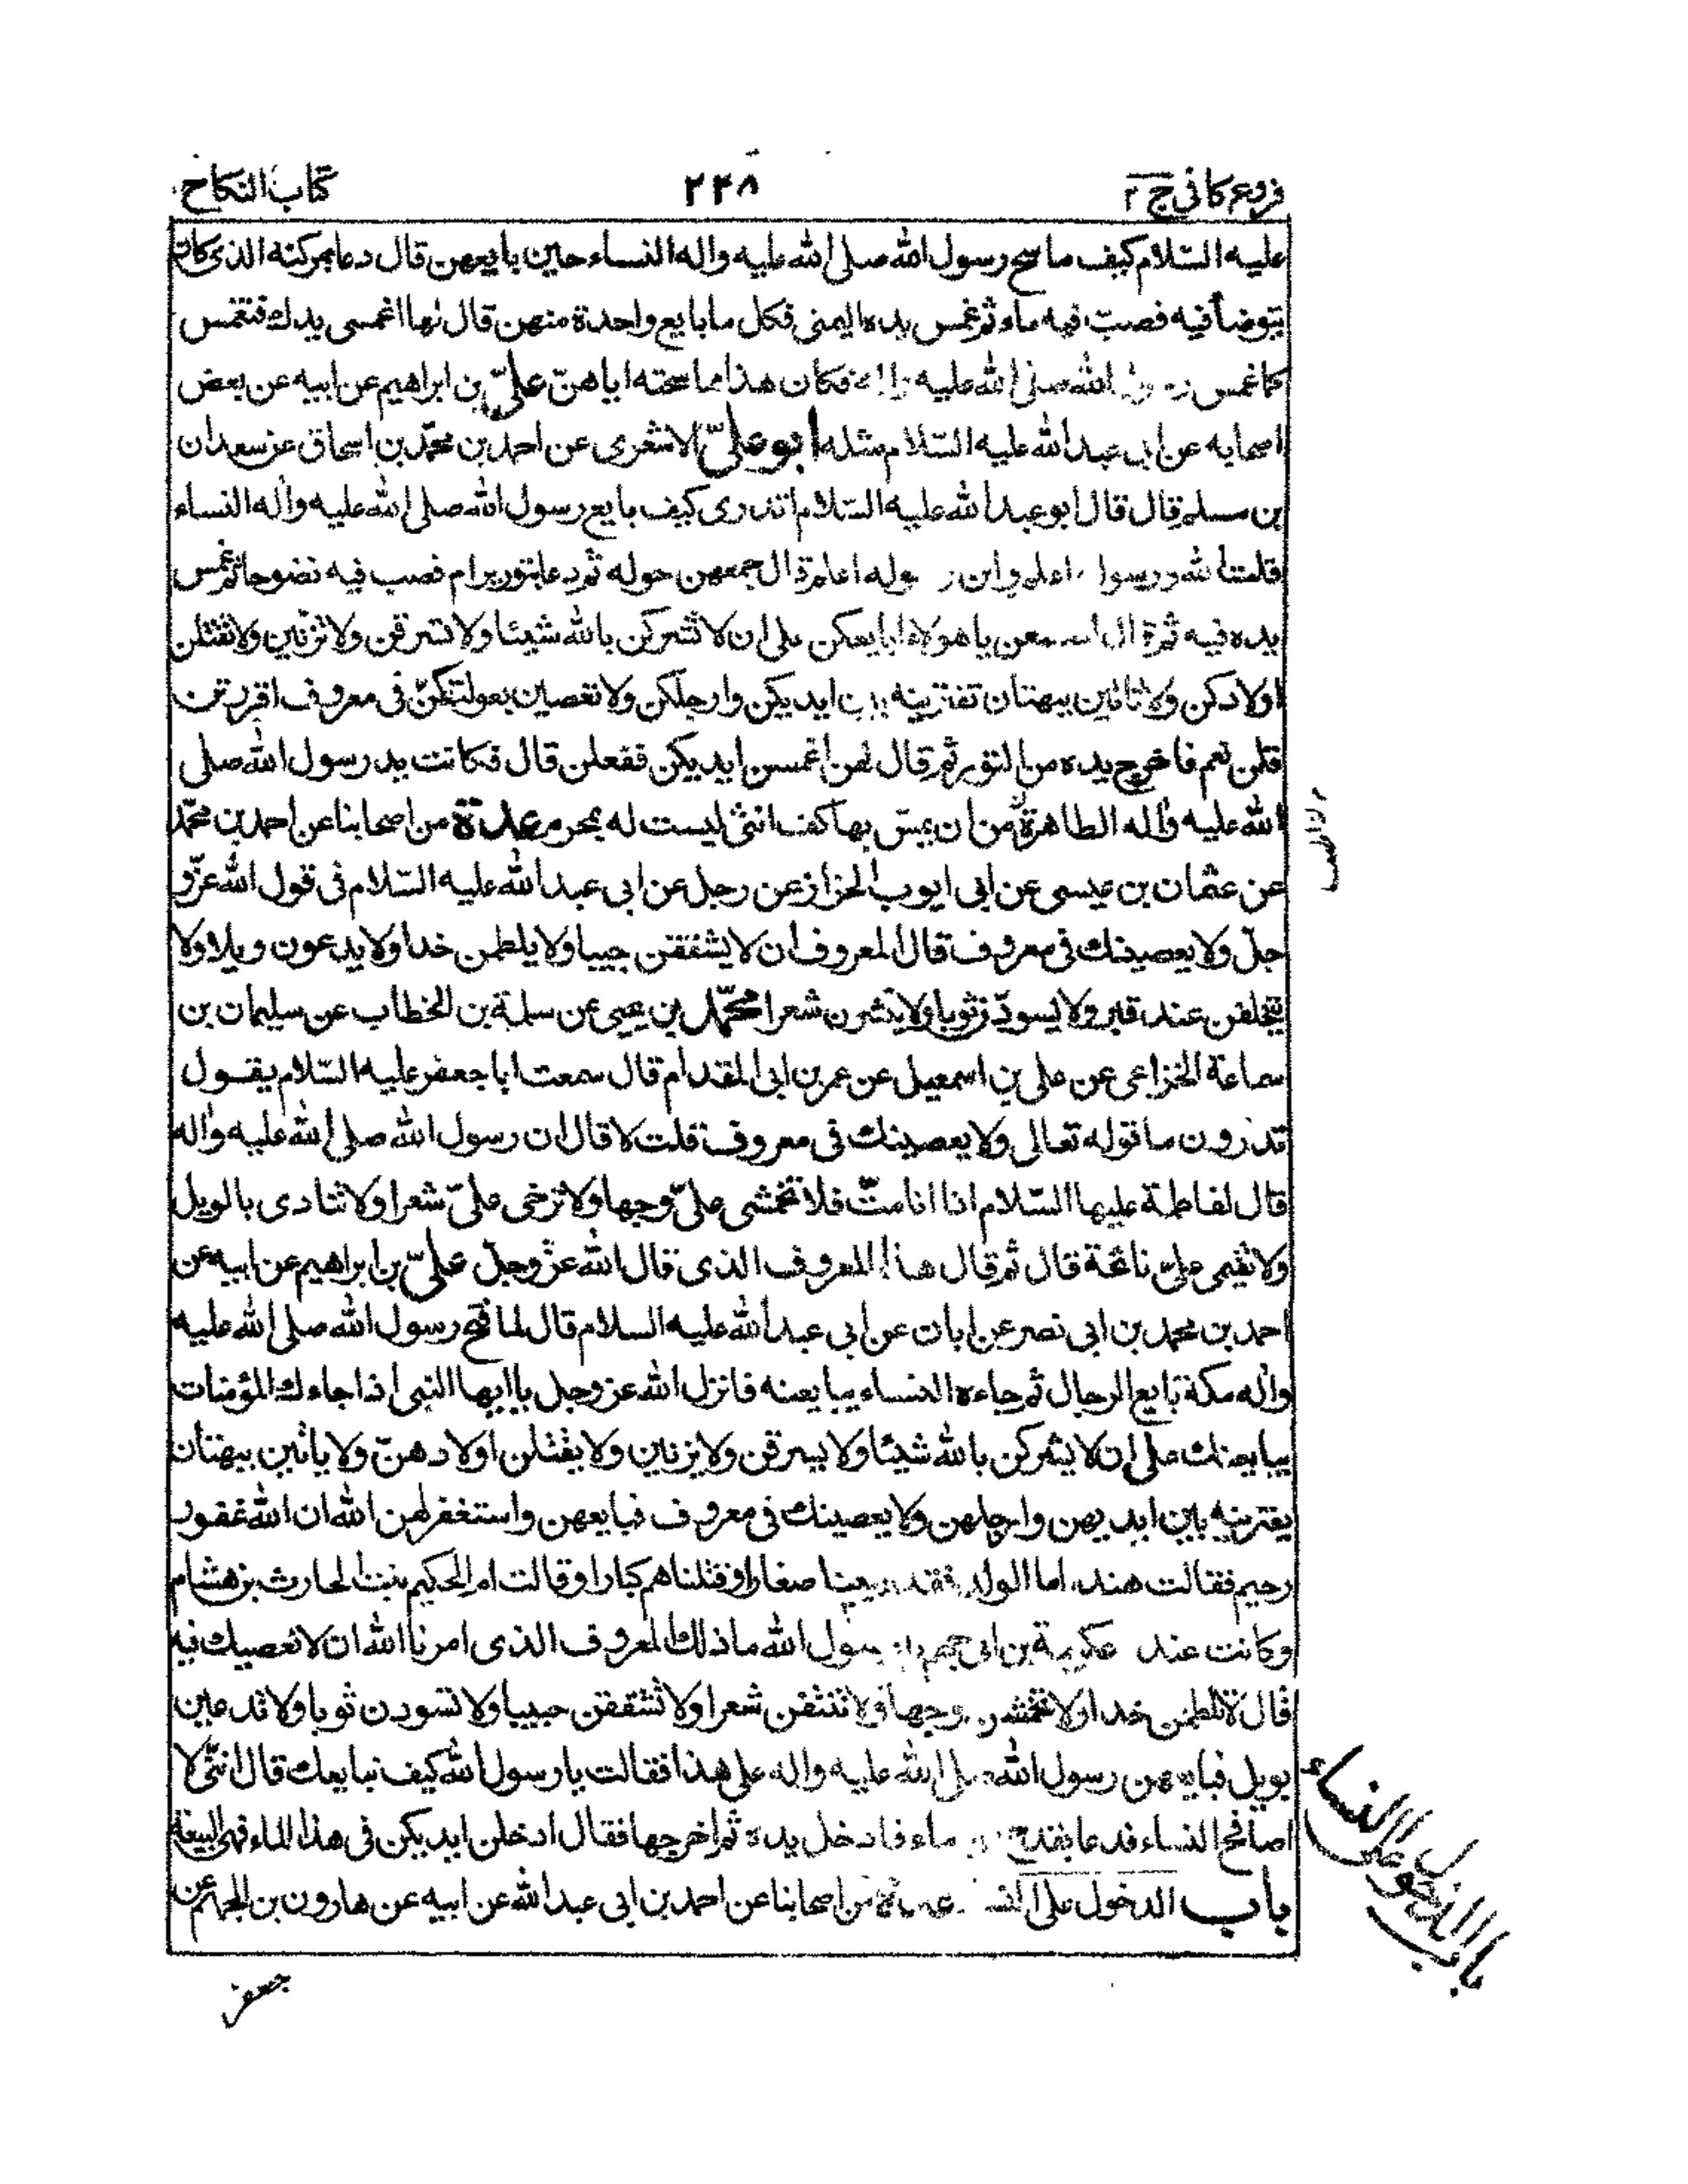 فروع كافى ج ٢
٢٢٨
كتاب النكاح
عليه السّلام كيف ماسح رسول الله صلى الله عليه واله النساء حين بايعهن قال دعا بمركنه الذى كان
يتوضأ فيه فصبّ فيه ماء ثم غمس يده اليمنى فكل ما بايع واحدة منهن قال لها اغمسى يدك فتغمس
كما غمس الله صلى الله عليه فكان هذا مماسحته اياهنّ علىّ بن ابراهيم عن ابيه عن بعض
اصحابه عن ابى عبد الله عليه السّلام مثله ابو علىّ الاشعرى عن احمد بن محمّد بن اسحاق عن سعدان
بن مسلم قال قال ابو عبد الله عليه السّلام اتدرى كيف بايع رسول الله صلى الله عليه واله النساء
قلت الله ورسوله اعلم وابن اعلم قال جمعهن حوله ثم دعا بتور برام فصب فيه نضوحا ثم غمس
يده فيه ثم قال اسمعن يا هولاء ابايعكن على ان لا تشركن بالله شيئا ولا تسرقن ولا تزنين ولا تقتلن
اولادكن ولا تاتين ببهتان تفترينه ايديكن وارجلكن ولا تعصين بعولتكنّ فى معروف اقررتن
قلن نعم فاخرج يده من التور ثم قال لهن اغمسن ايديكن ففعلن قال فكانت يد رسول الله صلى
الله عليه واله الطاهرة من ان يمسّ بها كف انثى ليست له بمحرم عدة من اصحابنا عن احمد بن محمّد
عن عثمان بن عيسى عن ابى ايوب الخزاز عن رجل عن ابى عبد الله عليه السّلام فى قول الله عزّ و
جلّ ولا يعصينك فى معروف قال المعروف ان لا يشققن جيبا ولا يلطمن خدا ولا يدعون ويلا ولا
يتخلفن عند قبر ولا يسودّن ثوبا ولا ينشرن شعرا محمّد بن يحيى عن سلمة بن الخطاب عن سليمان بن
سماعة الخزاعى عن على بن اسمعيل عن عمر بن ابى المقدام قال سمعت ابا جعفر عليه السّلام يقول
تدرون ما قوله تعالى ولا يعصينك فى معروف قلت لا قال ان رسول الله صلى الله عليه واله
قال لفاطمة عليها السّلام اذا انا متّ فلا تخمشى علىّ وجها ولا ترخى علىّ شعرا ولا تنادى بالويل
ولا تقيمى علىّ نائحة قال ثم قال هذا المعروف الذى قال الله عزّ وجلّ علىّ بن ابراهيم عن ابيه عن
احمد بن محمد بن ابى نصر عن ابان عن ابى عبد الله عليه السلام قال لما فتح رسول الله صلى الله عليه
واله مكة بايع الرجال ثم جاءه النساء يبايعنه فانزل الله عز وجل يا ايها النبى اذا جاءك المؤمنات
يبايعنك على ان لا يشركن بالله شيئا ولا يسرقن ولا يزنين ولا يقتلن اولادهنّ ولا ياتين ببهتان
يفترينه بين ايديهن وارجلهن ولا يعصينك فى معروف فبايعهن واستغفر لهن الله ان الله غفور
رحيم فقالت هند اما الولد فقد ربينا صغارا وقتلتاهم كبارا وقالت ام الحكيم بنت الحارث بن هشام
وكانت عند عكرمة بن ابى جهل رسول الله ما ذلك المعروف الذى امرنا الله ان لا نعصيك فيه
قال لا تلطمن خدا ولا تخمشن وجها ولا تنتفن شعرا ولا تشققن جيبا ولا تسودن ثوبا ولا تدعين
بويل فبايعهن رسول الله صلى الله عليه واله على هذا فقالت يا رسول الله كيف نبايعك قال انّنى لا
اصافح النساء فدعا بقدح ماء فادخل يده ثم اخرجها فقال ادخلن ايديكن فى هذا الماء فهى البيعة
باب الدخول على النساء عدة من اصحابنا عن احمد بن ابى عبد الله عن ابيه عن هارون بن الجهم عن
باب الدخول على النساء
جعفر